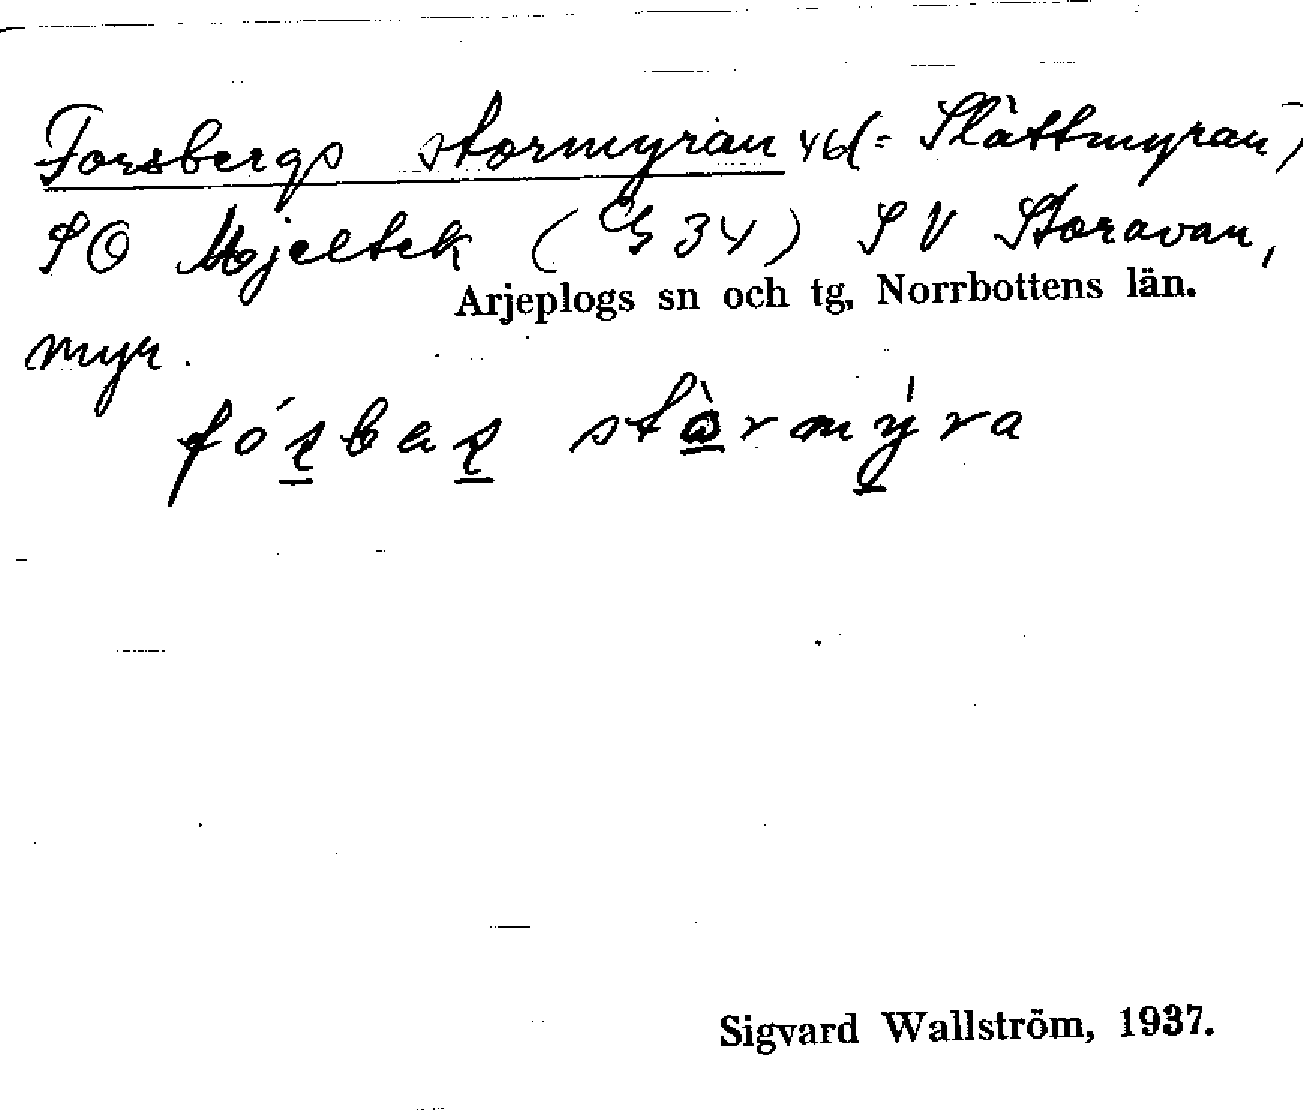 Forsbergs stormyran 46(= Slåttmyran)
SO Mojeltek (G 34) SV Storavan,
Arjeplogs sn och tg, Norrbottens län.
myr.
Sigvard Wallström, 1937.